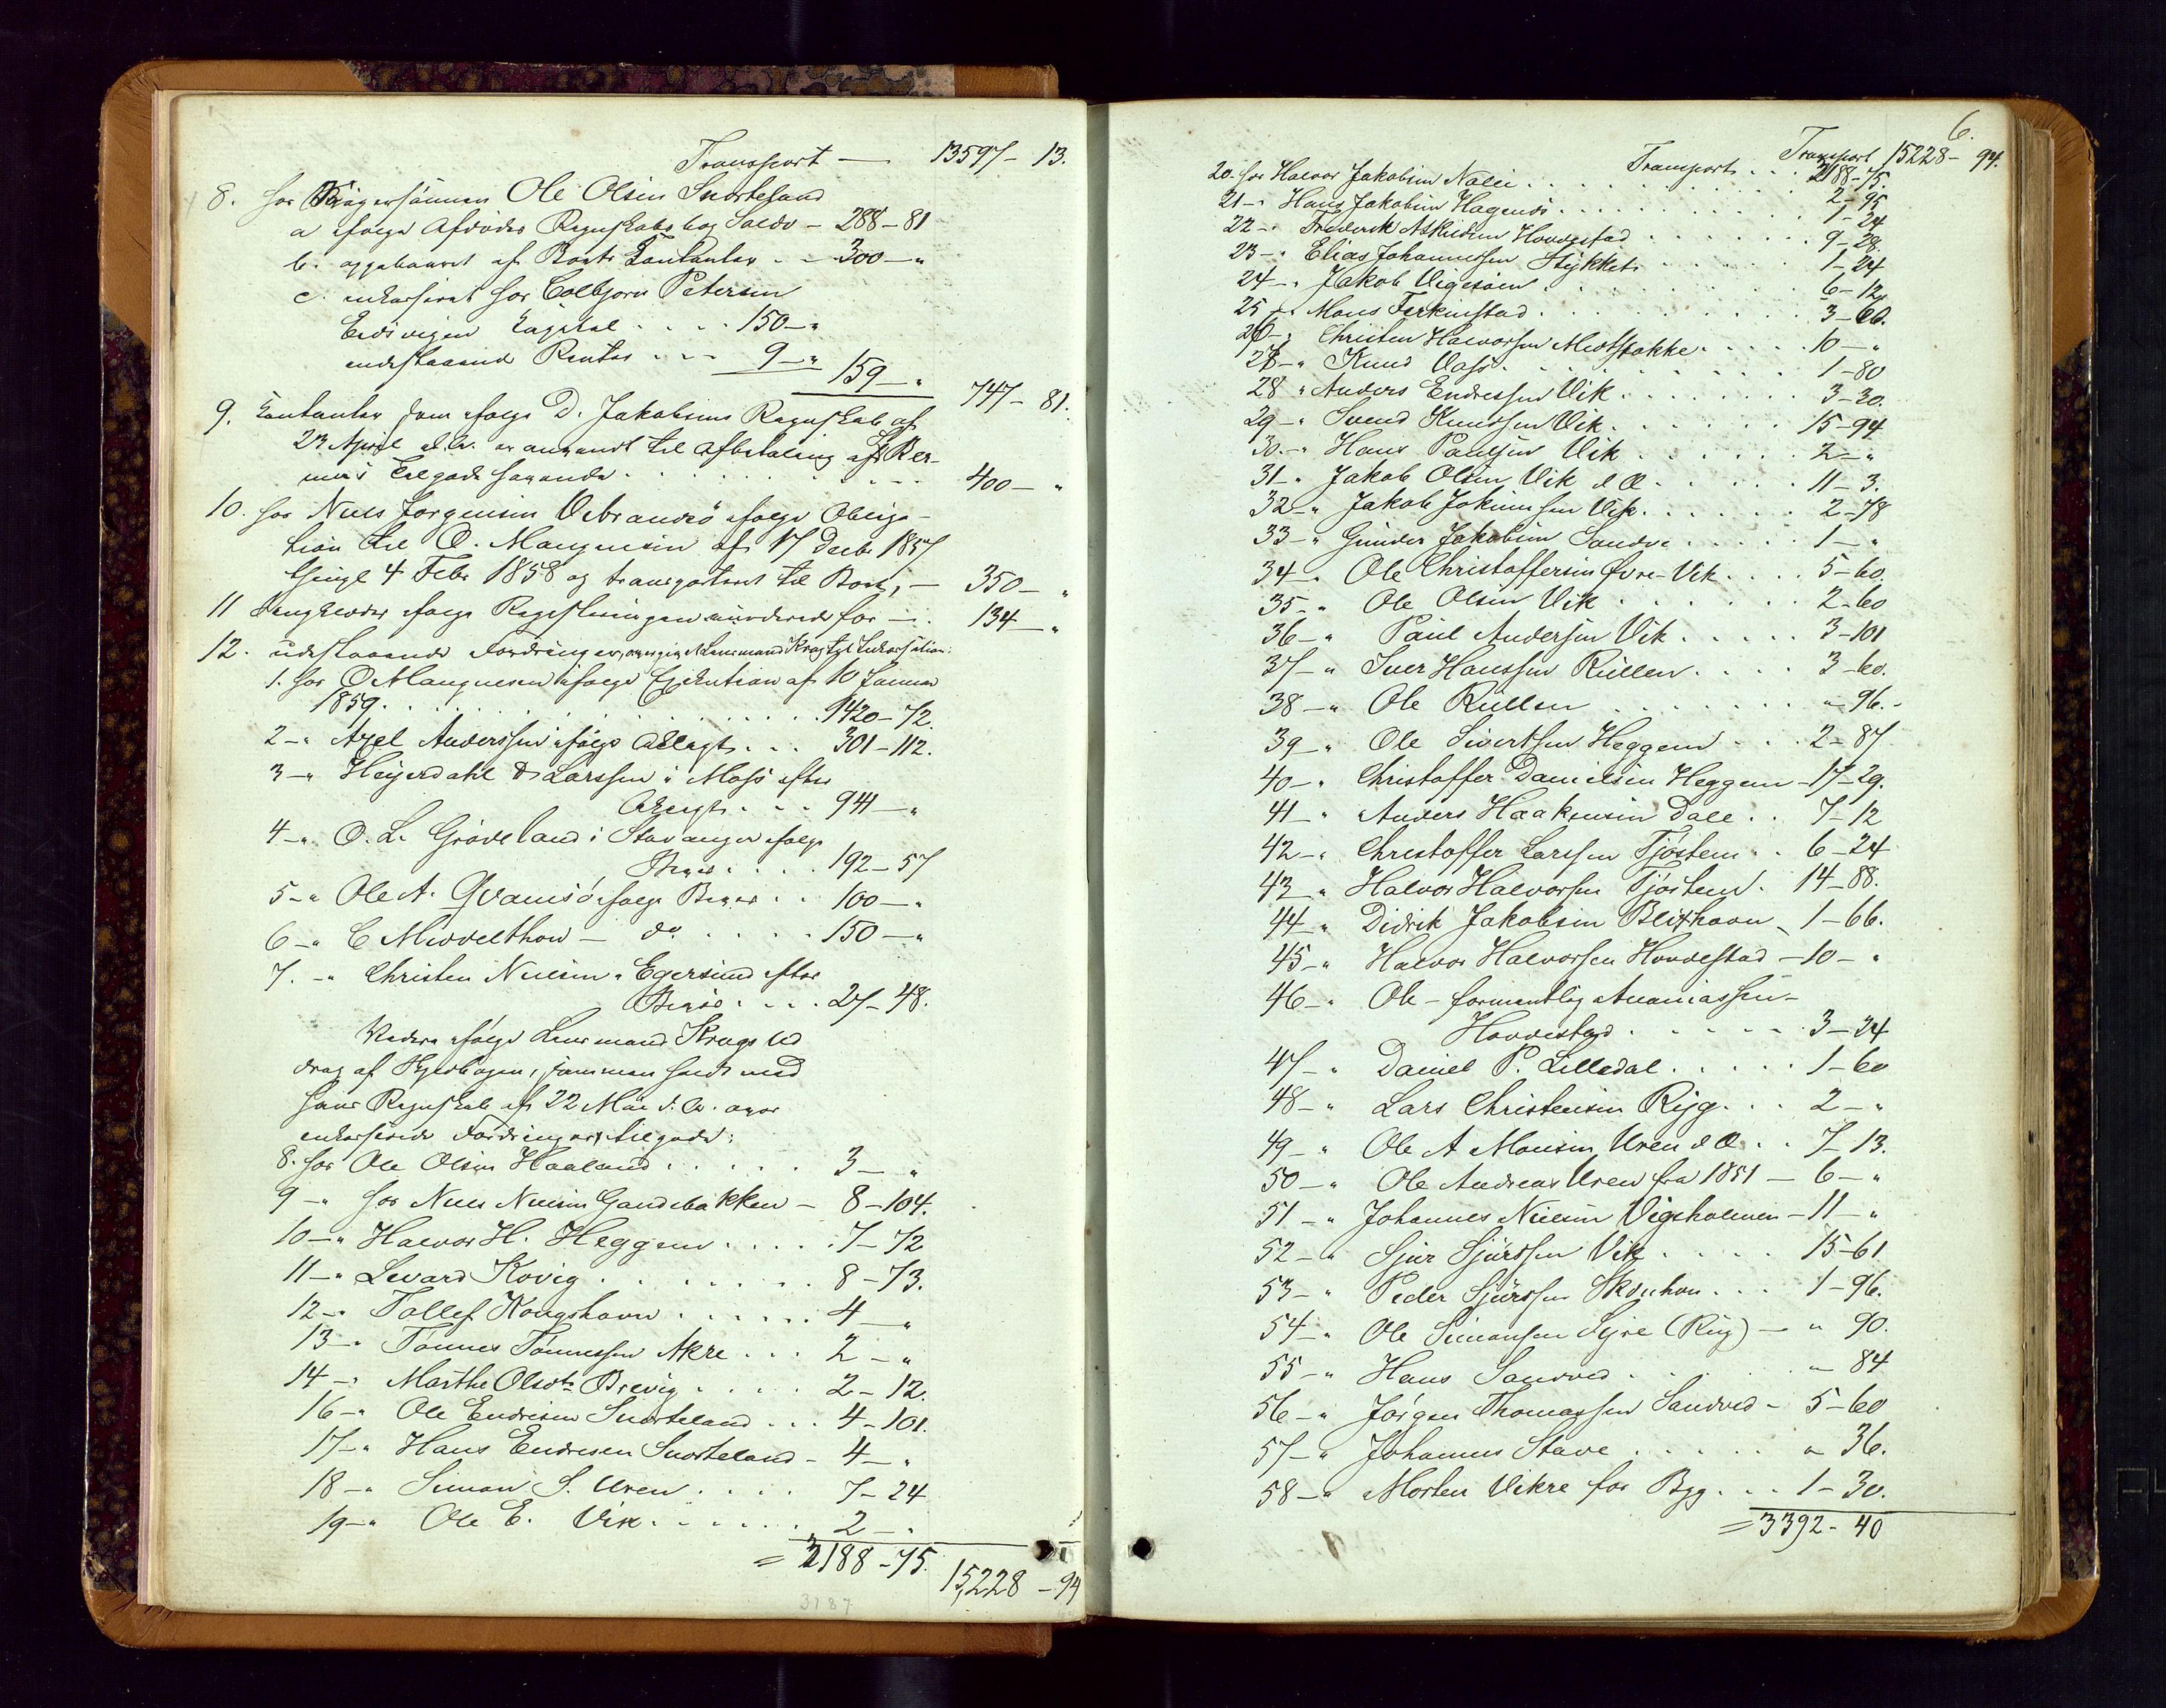 Transport — 13597 - 13.
8. hos Svigersönnen Ole Olsen Snorteland
a ifølge Afdødes Regnskabsbog Saldo - 288 - 81
b. oppebaaret af Boets Contanter - - 300 - "
c. inkasseret hos Colbjørn Petersen
Eidsvigen Capital . . . . 150 - "
udestaaende Renter . . . 9 - " 159 - " 747 - 81.
9. Contanter som ifølge D. Jakobsens Regnskab af
23 April d.A. er anvendt til Afbetaling af
tilgodehavende . . . . . 400 - "
10. hos Niels Jørgensen Vebrandsö ifølge Obliga-
tion til O. Mangnesen af 17 Decbr 1857
thingl 4 Febr 1858 og transporteret til Boet, - 350 - "
11 ifølge Registeringen vurderede for - . 134 - "
12. udestaaende Fordringer, overgivet Lensmand Krag til Inkassation:
1. hos O Mangnesen ifølge Exekution af 10 Januar
1859 . . . . . . . 1420 - 72.
2 - " Axel Anderssen ifølge Aflagt . . . 301 - 112.
3 - " Heyerdahl & Larssen i Moss efter
. . . 941 - "
4 - " O. L. Grödeland i Stavanger ifølge
Bevis . . . . 192 - 57
5 - " Ole A. Qvamsö ifølge Bevis . . 100 - "
6 - " C Middelthon - do . . . . . 150 - "
7. - " Christen Nielsen Egersund efter
Bevis . . . . 27 - 48.
Videre ifølge Lensmand Krags Ud
drag af , sammenholdt med
hans Regnskab af 22 Mai d. A. over
inkasserede Fordringer, tilgode:
8. hos Ole Olsen Haaland . . . . . 3 - "
9 - " hos Niels Nielsen Gandebakken - 8 - 104.
10 - " Halvor H. Heggem . . . . . 7 - 72
11 - " Levard Kovig . . . . . . . 8 - 73.
12 - " Tollef Kongshavn . . . . . . 4 - "
13 - " Tønnes Tønnessen Akre . . . 2 - "
14 - " Marthe Olsdtr Brevig . . . . 2 - 12.
16 - " Ole Endresen Snorteland . . . 4 - 101.
17 - " Hans Endresen Snorteland - 4 - "
18 - " Simon S. Uren . . . . 7 - 24
19 - " Ole E. Vik . . . . . . 2 - "
= 3188 - 75. 15,228 - 94
3187
6.
Transport 15228 - 94.
Transport . . . 3188 - 75.
20. hos Halvor Jakobsen Nalei . . . . . 2 - 95
21 - " Hans Jakobsen Hagenös . . . . . 1 - 24
22 - " Frederik Askildsen Hovdestad . . . . 9 - 28.
23 - " Elias Johannessen Stykket . . . . 1 - 24
24 - " Jakob Vigesöen . . . . . . 6 - 12.
25 - " Mons Ferkinstad . . . . . . 3 - 60.
26 - " Christen Halvorsen Midtstokke . . . . 10 - "
27 - " Knud Vass . . . . . . . 1 - 80
28 " Anders Endressen Vik . . . . . . 3 - 30.
29 - " Svend Knudssen Vik . . . . . 15 - 94
30. - " Hans Paulsen Vik . . . . . . 2 - "
31 - " Jakob Olsen Vik d Æ . . . . . 11 - 3.
32 - " Jakob Jokumsen Vik . . . . . . 2 - 78
33 - " Gunder Jakobsen Sandve . . . . . 1 - "
34 - " Ole Christoffersen Øvre-Vik . . . . 5 - 60.
35 - " Ole Olsen Vik . . . . . . 2 - 60
36 - " Paul Andersen Vik . . . . . 3 - 101
37 - " Iver Hanssen Rullen . . . . 3 - 60.
38 - " Ole Rullen . . . . . . . " - 96. -
39 - " Ole Sivertsen Heggem . . . 2 - 87
40 - " Christoffer Danielsen Heggem - 17 - 29.
41 - " Anders Haakensen Dale . . 7 - 12
42 - " Christoffer Larssen Tjøstem . . 6 - 24
43 - " Halvor Halvorsen Tjøstem . 14 - 88.
44 - " Didrik Jakobsen Blixhavn - 1 - 66.
45 - " Halvor Halvorsen Hovdestad - 10 - "
46 - " Ole - formentlig Ananiassen -
Hovdestad . . . . . . 3 - 24
47 - " Daniel P. Lilledal . . . . . 1 - 60
48 - " Lars Christensen Ryg . . . 2 - "
49 - " Ole A Monsen Uren d Æ . . 7 - 13.
50 - " Ole Andreas Uren fra 1851 - 6 - "
51 - " Johannes Nielsen Vigsholmen - 11 - "
52 - " Sjur Sjurssen Vik . . . . 15 - 61
53 - " Peder Sjurssen . . . 1 - 96.
54 - " Ole Simonsen Syre (Ryg) - " 90.
55 - " Hans Sandved . . . . . " - 84
56 - " Jørgen Thomassen Sandved - 5 - 60
57 - " Johannes Stave . . . . . " 36.
58 - " Morten Vikre for Byg . . . 1 - 30.
= 3392 - 40